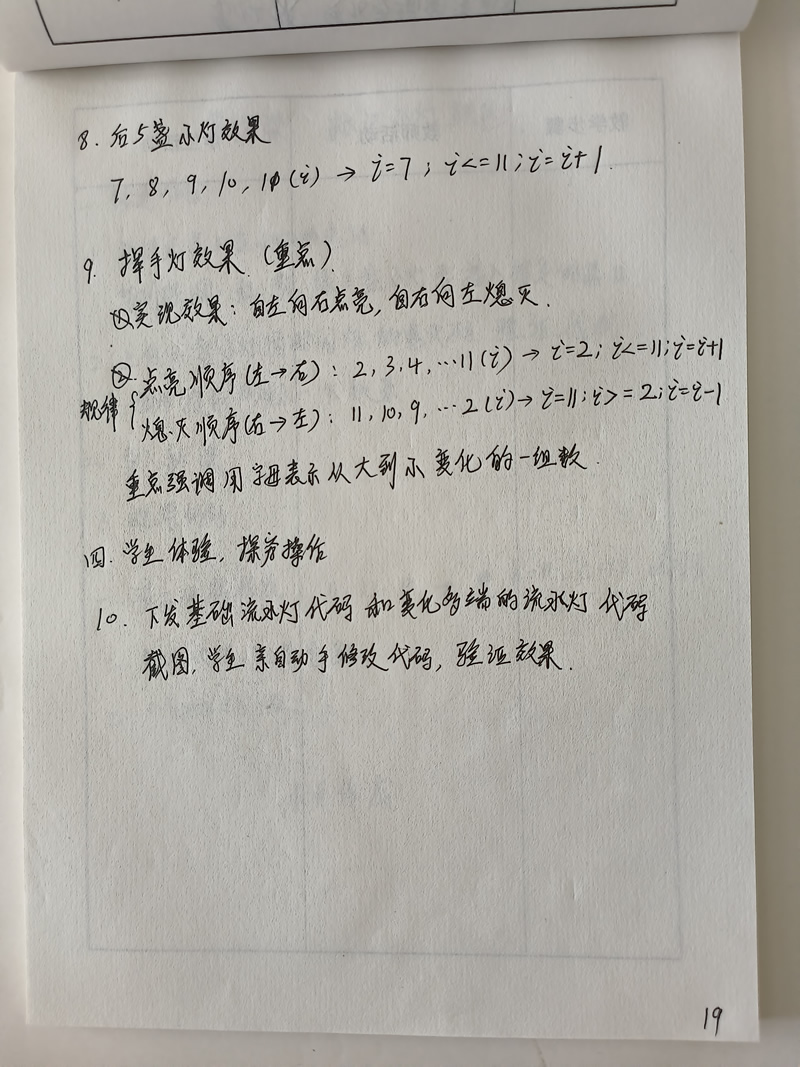 8. 后5盏小灯效果
7, 8, 9, 10, 11(i) → i=7; i<=11; i=i+1.
9. 挥手灯效果.(重点).
①实现效果:自左向右点亮,自右向左熄灭.
②点亮顺序(左→右): 2, 3, 4, …11(i) → i=2; i<=11; i=i+1
规律{熄灭顺序(右→左): 11, 10, 9, …2(i) → i=11; i>=2; i=i-1
重点强调用字母表示从大到小变化的一组数.
四. 学生体验,探究操作
10. 下发基础流水灯代码和变化多端的流水灯代码
截图,学生亲自动手修改代码,验证效果.
19